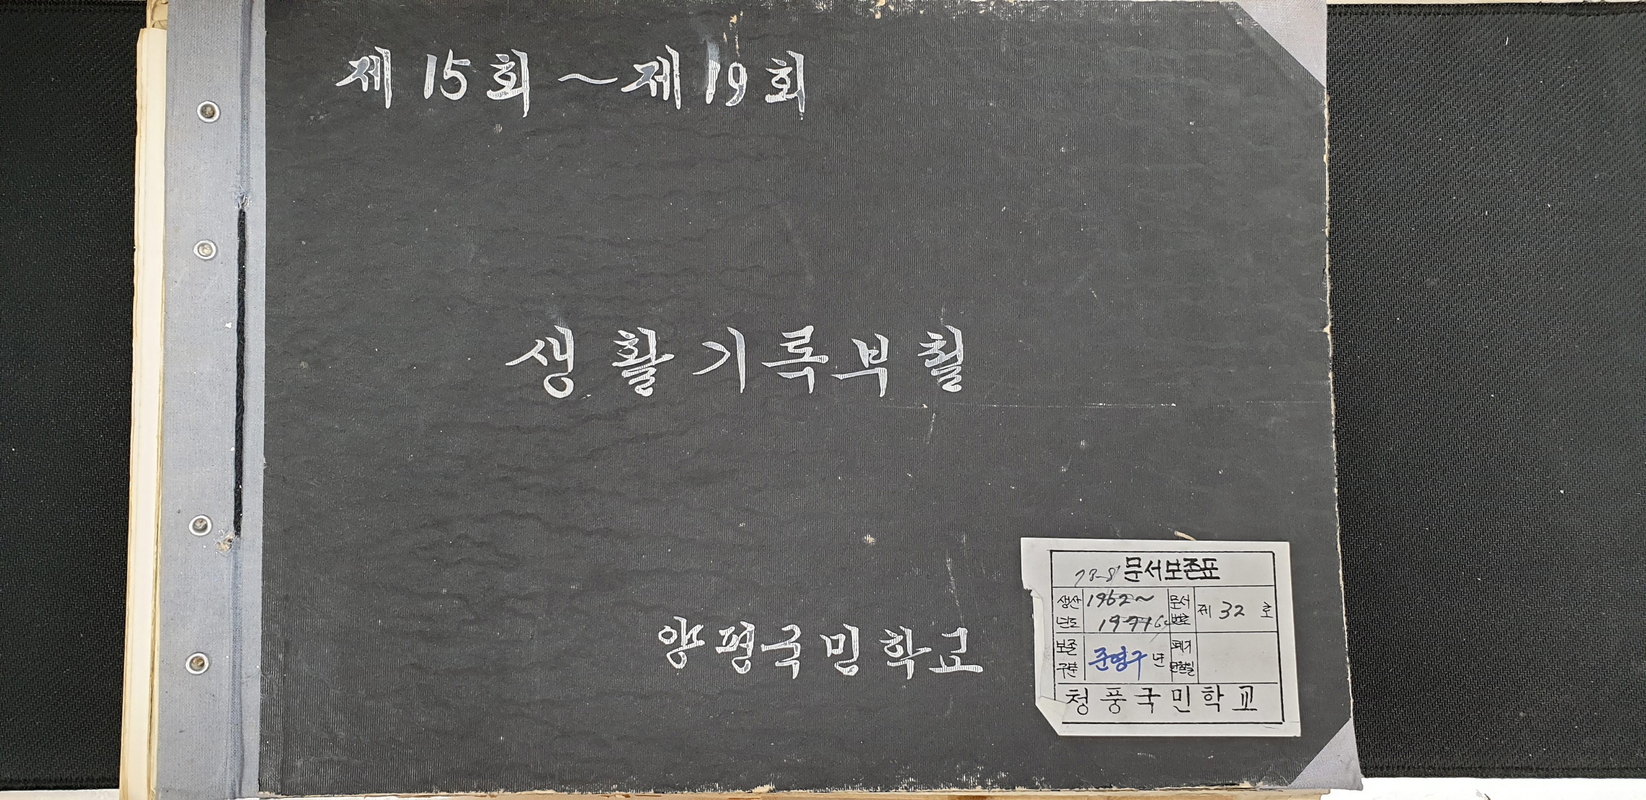 제 15 회 ~ 제 19 회
생활기록부철
양평국민학교
문서보존표
생산년도 1962~
문서번호 제 32 호
보존구분 준영구 년
폐기
청풍국민학교